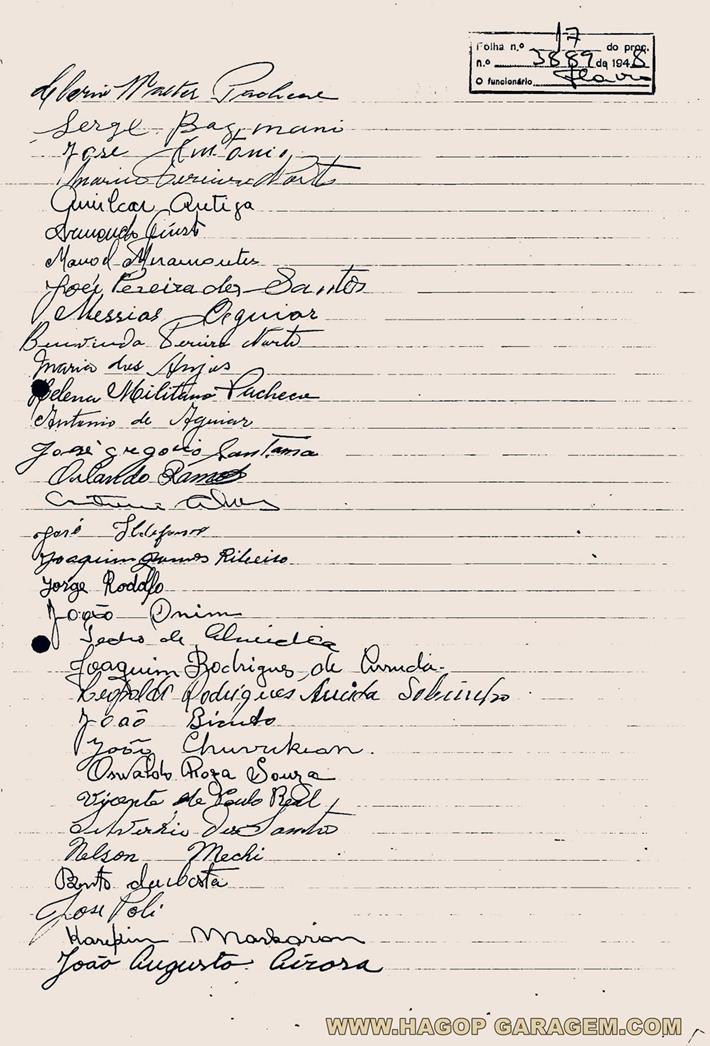 Folha n.º 17 do proc.
n.º 3889 de 1948
O funcionário
Walter Pacheco
Serge Bagmani
José Antonio
Mario Pereira
Amilcar Artiga
Armando
Manoel Miramontes
José Pereira dos Santos
Messias Aguiar
Benvinda Pereira
Maria dos Anjos
Helena Militano Pacheco
Antonio de Aguiar
José gregorio Santana
Orlando Ramos
Alves
José Ildefonso
Joaquim Ramos Ribeiro
Jorge Rodolfo
João Onim
Pedro de Almeida
Joaquim Rodrigues de Arruda.
Rodrigues Sobrinho
João
João Churukian.
Oswaldo Roza Souza
Vicente de Paulo Real
dos Santos
Nelson Mechi
Bento da Costa
José Poli
Karekin Markarian
João Augusto Airosa
WWW.HAGOP GARAGEM.COM